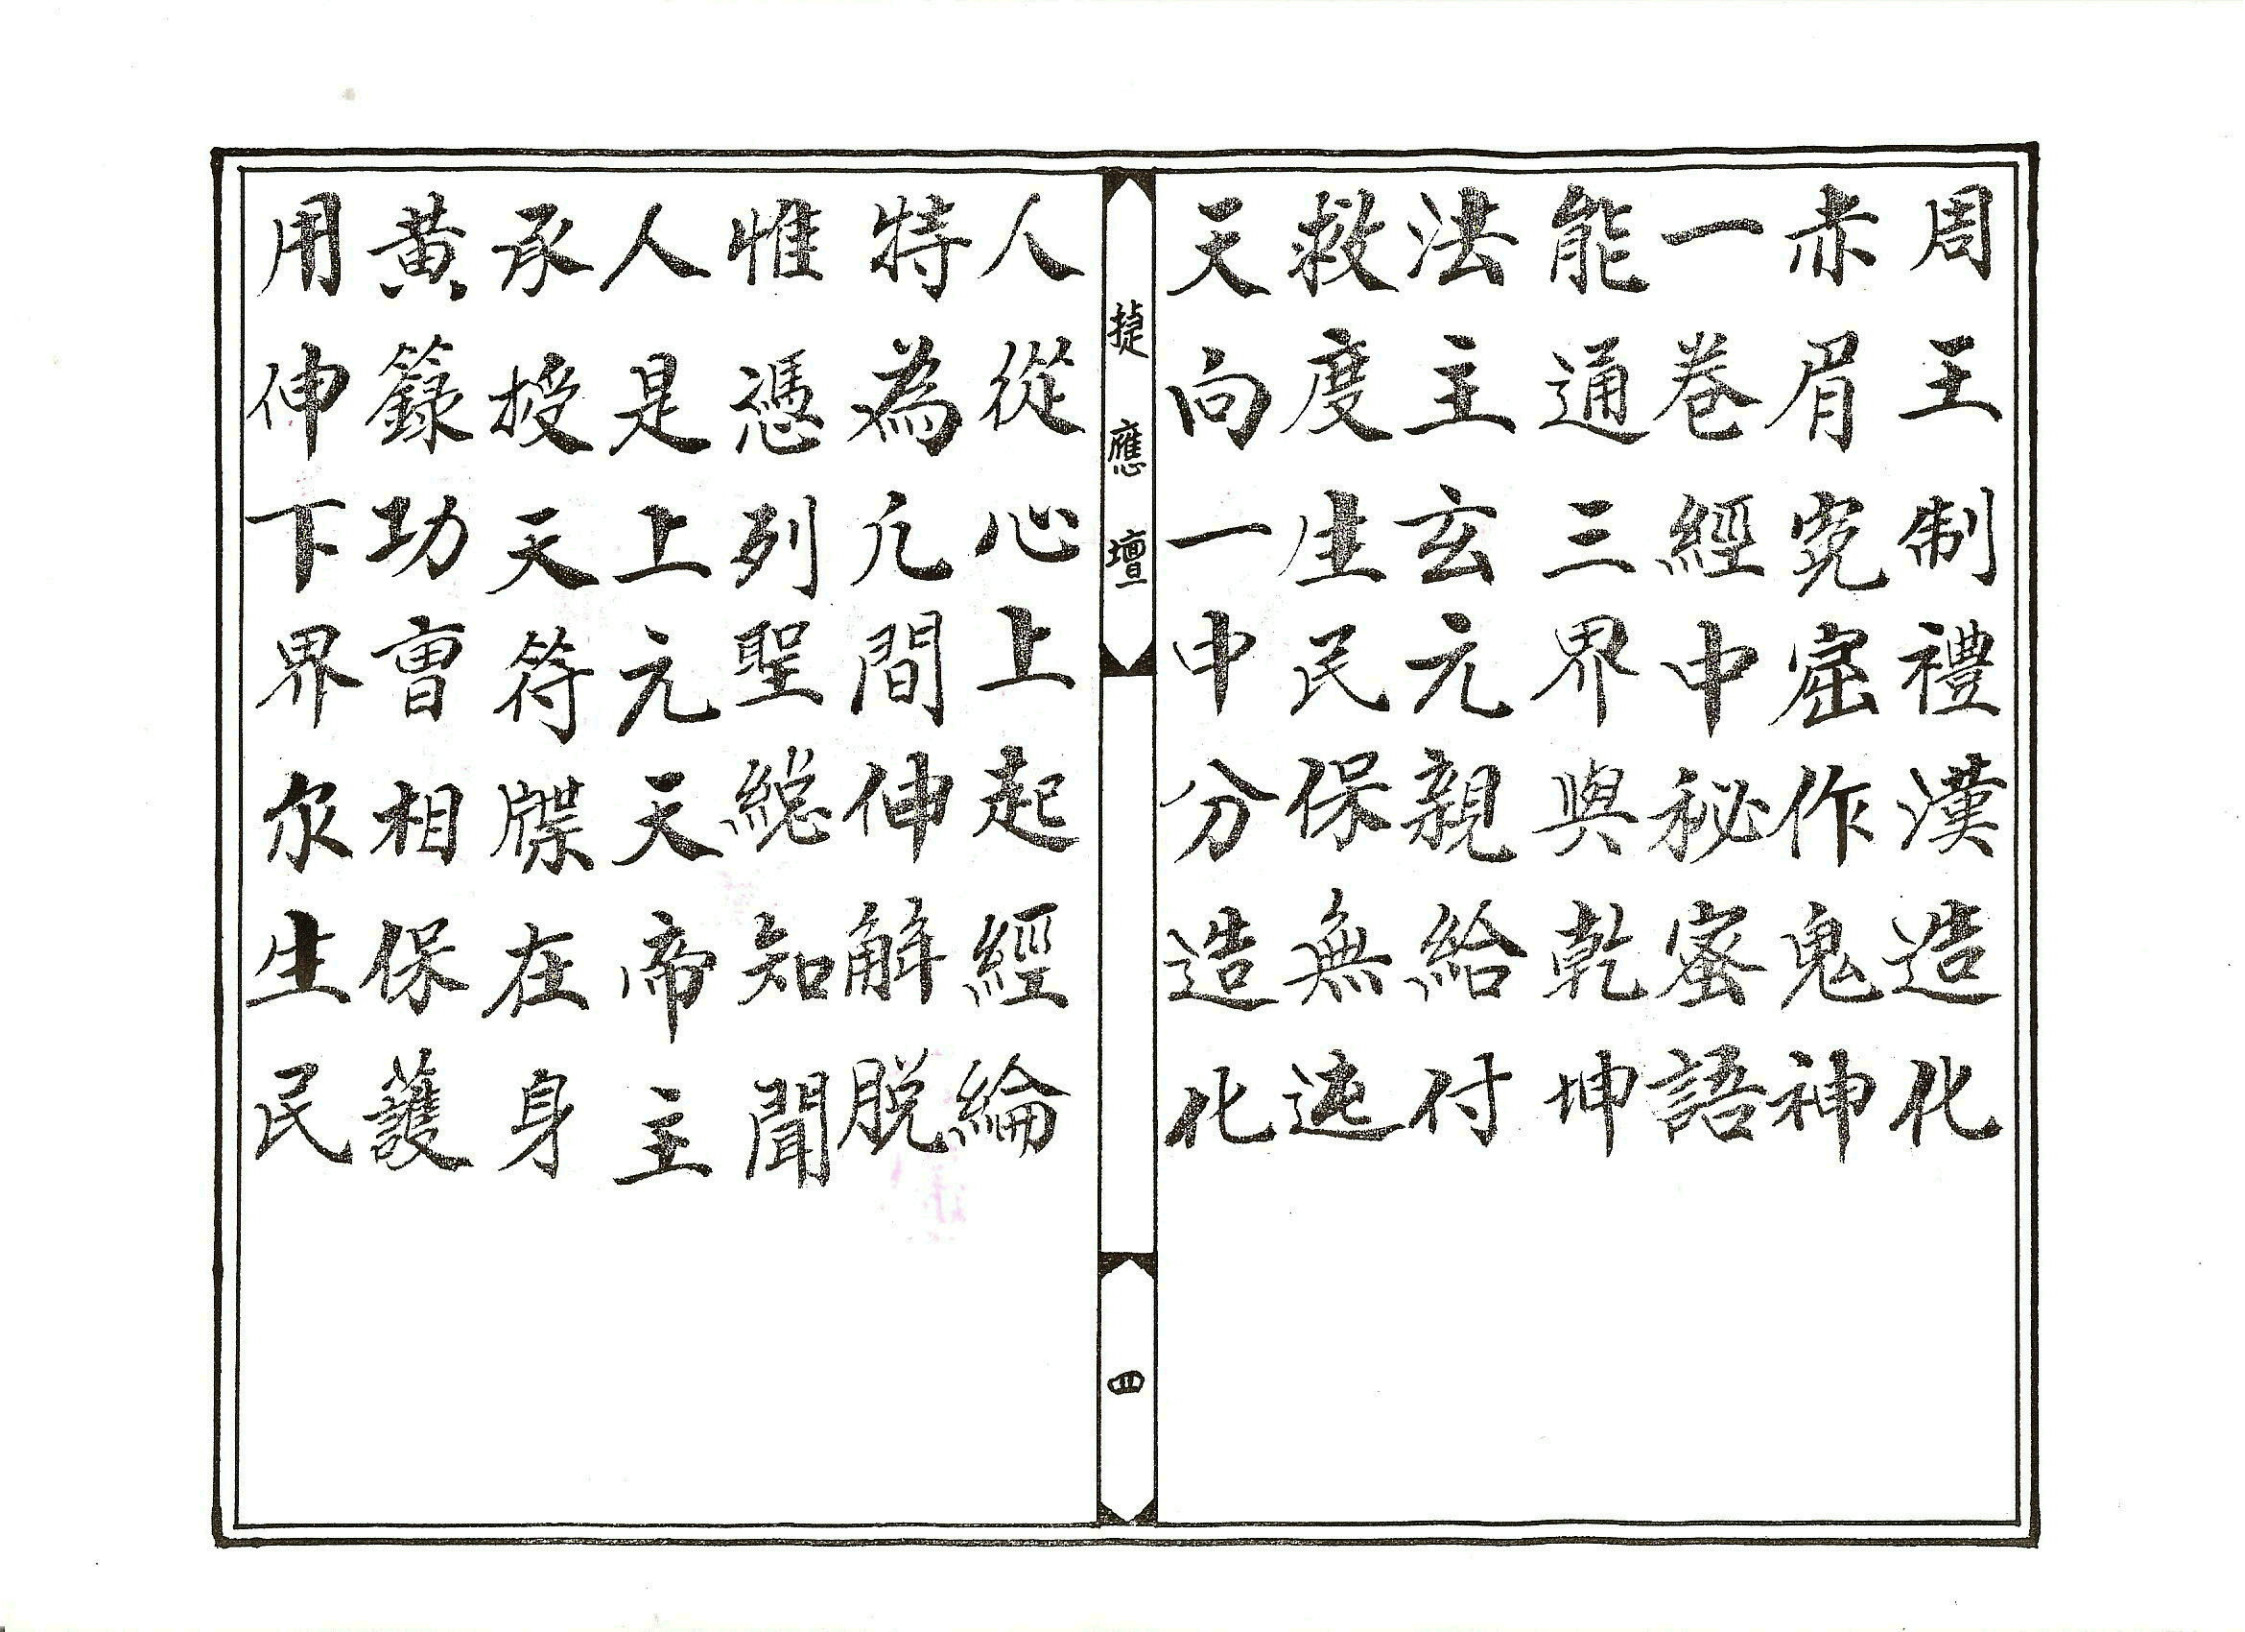 周王制禮漢造化
赤眉冤窟作鬼神
一卷經中秘密語
能通三界與乾坤
法主玄元親給付
救度生民保無迍
天向一中分造化
捷應壇
四
人從心上起經綸
特為凢間伸解脱
惟憑列聖総知聞
人是上元天帝主
承授天符牒在身
黃籙功曺相保護
用伸下界尔生民